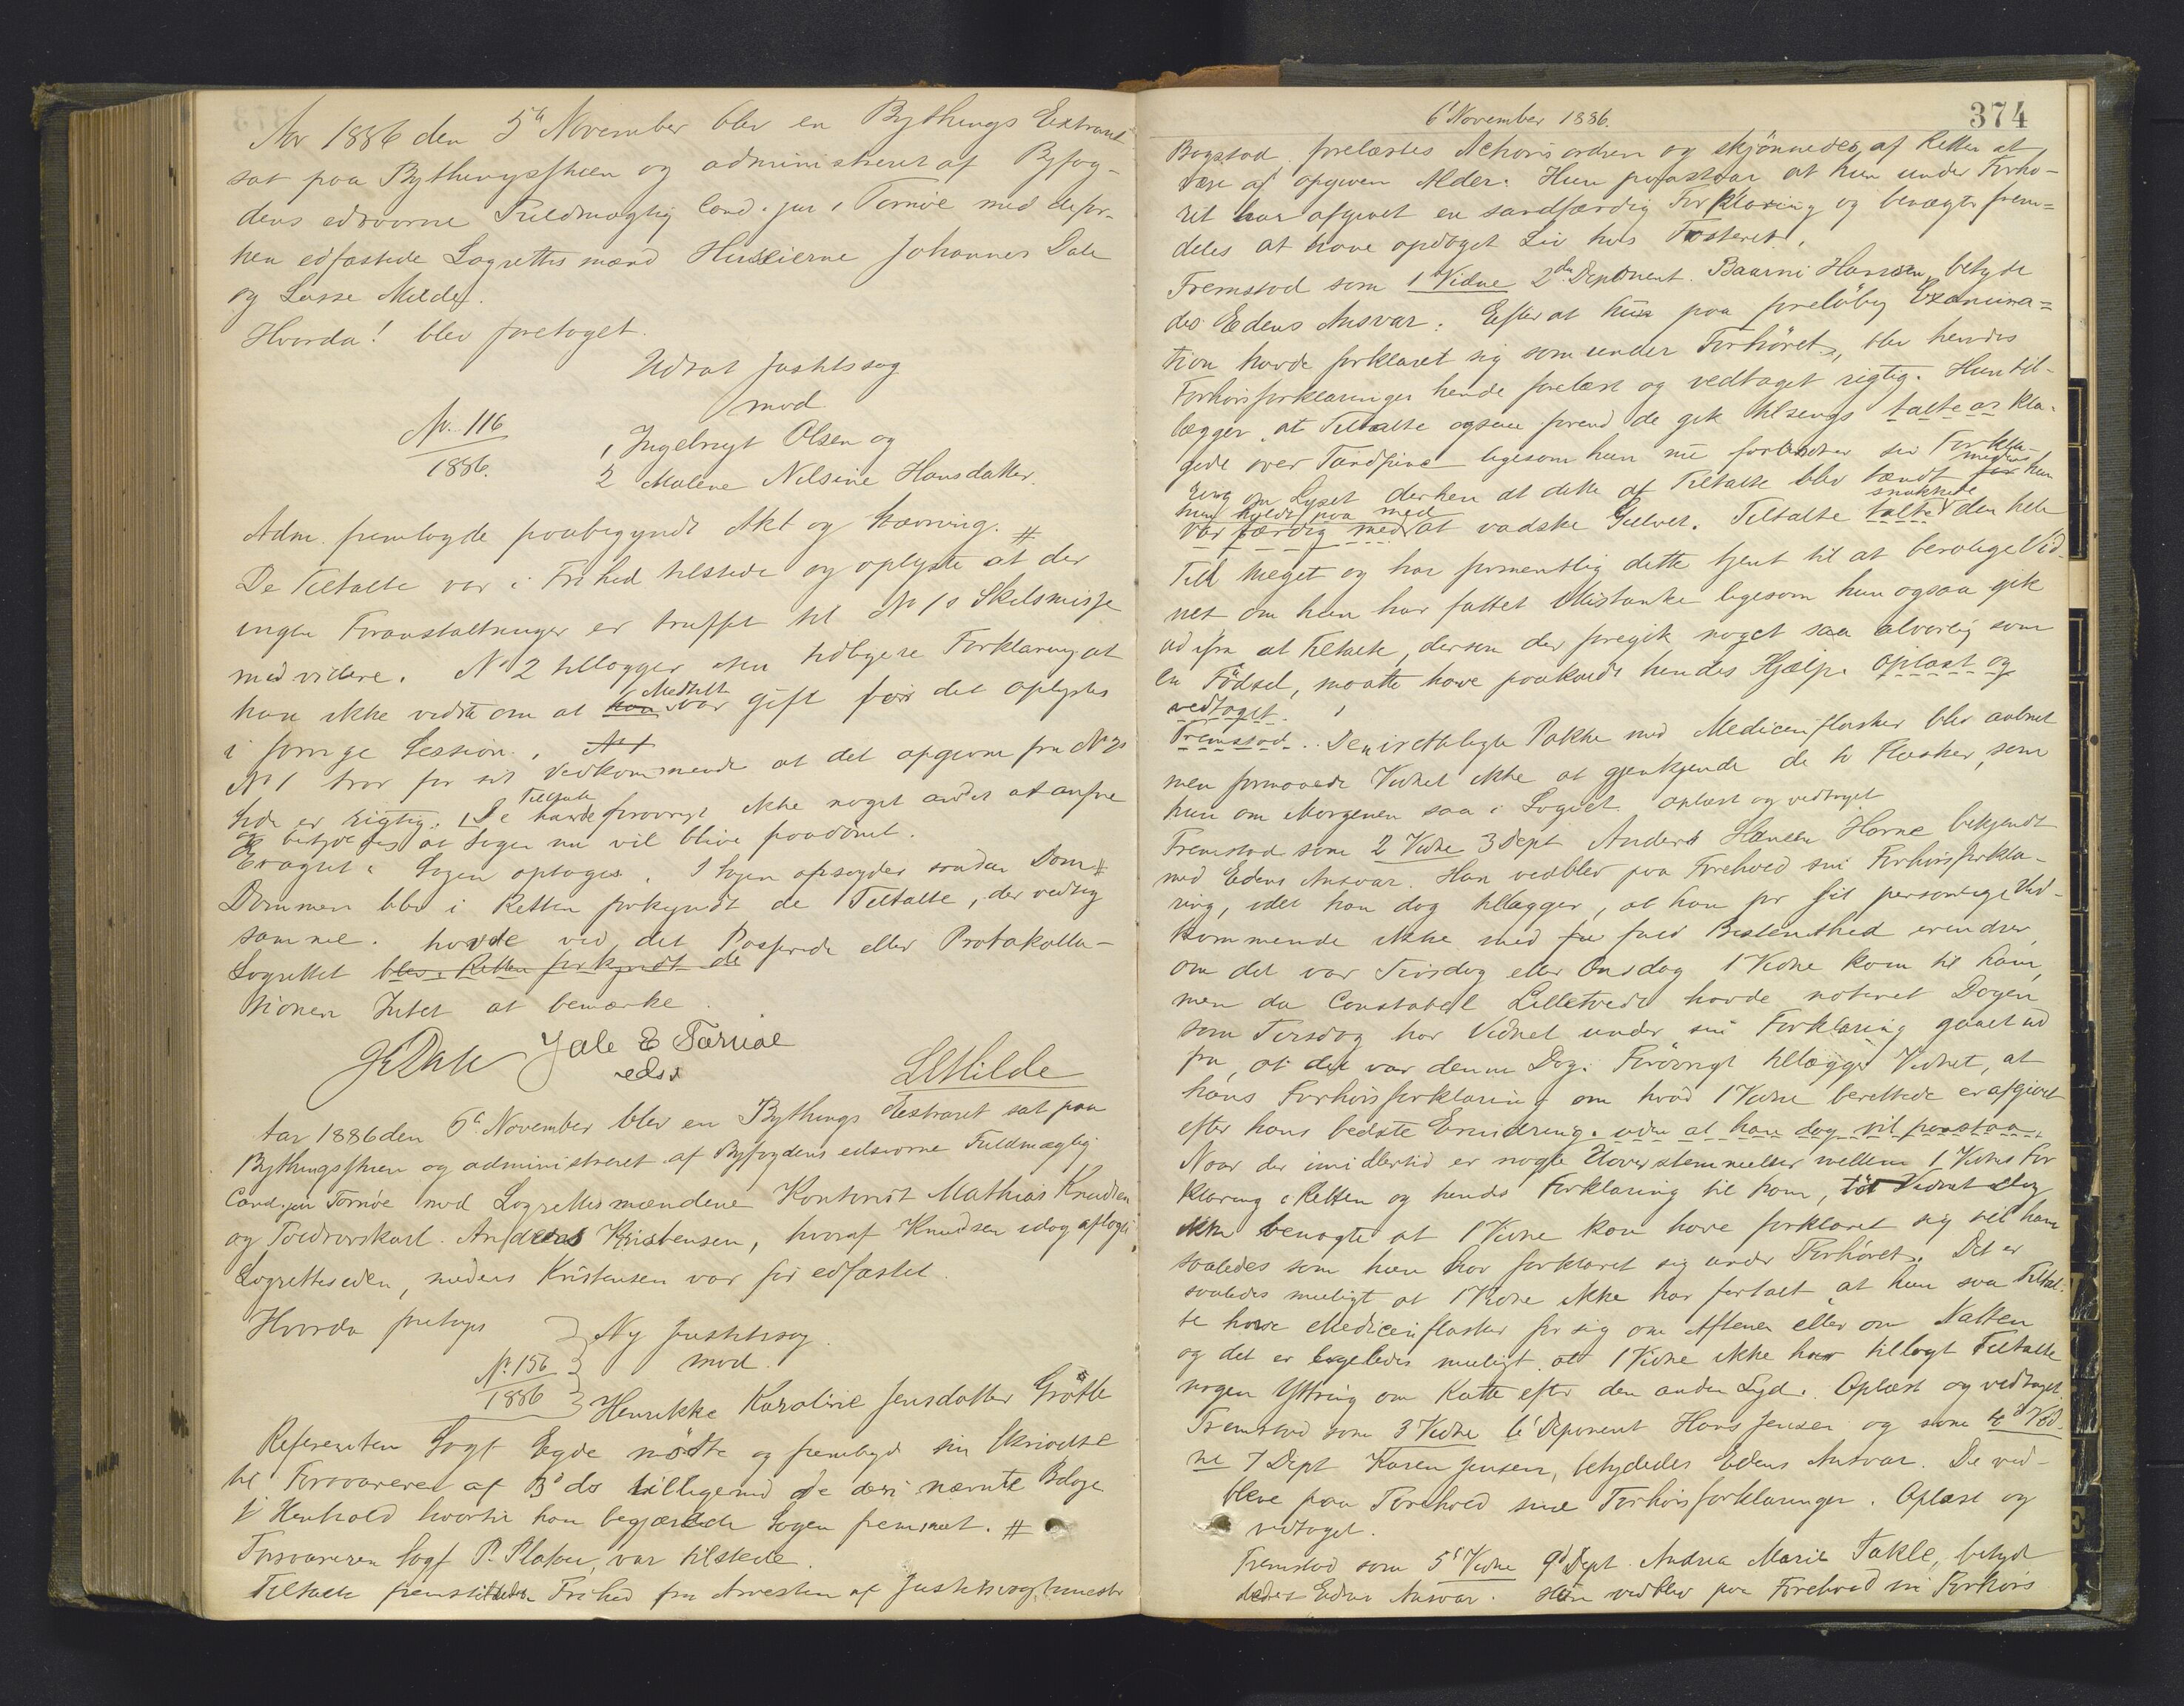 Aar 1886 den 5te November blev en Bythings Extraret
sat paa Bythingsstuen og administreret af Byfog-
dens edsvorne Fuldmægtig Cand. jur. Tornöe med de for-
hen edfæstede Lagrettesmænd Huseierne Johannes Dale
og Lasse Milde.
Hvorda! blev foretaget.
Udsat Justitssag
mod
No. 116
1886.
1, Ingebrigt Olsen og
2 Malene Nilsine Hansdatter.
Adm. fremlagde paabegyndt Akt og Stævning. #
De Tiltalte var i Frihed tilstede og oplyste at der
ingen Foranstaltninger er truffet til No 1s Skilsmisse
med videre. No 2 tillægger sin tidligere Forklaring at
hun ikke vidste om at han Medtilt var gift før det oplystes
i forrige Session. No 1
No 1 tror for sit Vedkommende at det opgivne fra No 2s
Side er rigtig. De Tiltalte havde forøvrigt ikke noget andet at anføre
og betydedes at Sagen nu vil blive paadömt.
Eragtet: Sagen optages. I Sagen afsagdes saadan Dom #
Dommen blev i Retten forkyndt de Tiltalte, der vedtog
samme. havde ved det Passerede eller Protokolla-
Lagrettet blev i Retten forkyndt de
tionen Intet at bemærke.
J Dale Jale E Tornöe L Milde
eds.
Aar 1886 den 6te November blev en Bythings Extraret sat paa
Bythingsstuen og administreret af Byfogdens edsvorne Fuldmægtig
Cand. jur Tornöe med Lagrettesmændene Kontorist Mathias Knudsen
og Andreas Kristensen, hvoraf Knudsen idag aflagde
Lagretteseden, medens Kristensen var før edfæstet.
Hvorda foretoges
Ny Justitssag
No. 156
1886
mod
Henrikke Karoline Jensdatter Grötte
Referenten Sagf Egde mödte og fremlagde sin Skrivelse
til Forsvareren af 3d ds tilligemed de deri nævnte Bilage
i Henhold hvortil han begjærede Sagen fremmet. #
Forsvareren Sagf P. Platou, var tilstede.
Tiltalte fremstilledes i Frihed fra Arresten af
6t November 1886.
374
Bogstad. forelæstes Actionsordren og skjönnedes af Retten at
være af opgiven Alder. Hun paastaar at hun under Forhö-
ret har afgivet en sandfærdig Forklaring og benægter frem-
deles at have opdaget Liv hos Fosteret.
Fremstod som 1 Vidne 2den Deponent. Hansen, betyde
des Edens Ansvar. Efter at hun paa foreløbig Examina-
tion havde forklaret sig som under Forhöret, blev hendes
Forhørsforklaringer hende forelæst og vedtaget rigtig. Hun til-
lægger, at Tiltalte ogsaa forend de gik tilsengs talte os kla-
gede over Tandpine ligesom hun nu forandrer sin Forkla-
ring om Lyset derhen at dette af Tiltalte blev tændt før medens hun
hun holdt paa med
var færdig med at vadske Gulvet. Tiltalte talte snakkede den hele
Tid meget og har formentlig dette tjent til at berolige Vid-
net om hun har fattet Mistanke ligesom hun ogsaa gik
ud ifra at Tiltalte, dersom der foregik noget saa alvorlig som
en Födsel, maatte have paakaldt hendes Hjælp. Oplæst og
vedtaget.
Fremstod. Den iretlelagte Pakke med Medicinflasker blev aabnet
men formaaede Vidnet ikke at gjenkjende de to Flasker, som
hun om Morgenen saa i Logiet. Oplæst og vedtaget
Fremstod som 2 Vidne 3 Dept Anders Hansen Horne bekjendt
med Edens Ansvar. Han vedblev paa Forehold sin Forhörsforkla-
ring, idet han dog tillægger, at han for sit personlige Ved-
kommende ikke med fu fuld Bestemthed erindrer,
om det var Tirsdag eller Onsdag 1 Vidne kom til ham,
men da Constabel Lilletvedt havde noteret Dagen
som Tirsdag har Vidnet under sin Forklaring gaaet ud
fra, at det var denne Dag. Forövrigt tillægger Vidnet, at
hans Forhörsforklaring om hvad 1 Vidne berettede er afgivet
efter hans bedste Erindring. uden at han dog vil paastaa.
Naar der imidlertid er nogle Uoverstemmelser mellem 1 Vidnes For
klaring i Retten og hendes Forklaring til ham, tör Vidnet dog
ikke benægte at 1 Vidne kan have forklaret sig til ham
saaledes som hun har forklaret sig under Forhöret. Det er
saaledes muligt at 1 Vidne ikke har fortalt at hun saa Tiltal-
te have Medicinflasker for sig om Aftenen eller om Natten
og det er ligeledes muligt at 1 Vidne ikke har tillagt Tiltalte
nogen Yttring om Katte efter den anden Lyd. Oplæst og vedtaget.
Fremstod som 3 Vidne 6t Deponent Hans Jensen og som 4d Vid-
ne 7 Dept Karen Jensen, betydedes Edens Ansvar. De ved-
bleve paa Forehold sine Forhörsforklaringer. Oplæst og
vedtaget.
Fremstod som 5t Vidne 9d Dept Andrea Marie Takle, betyd
dedes Edens Ansvar. Hun vedblev paa Forehold sin Forhörs